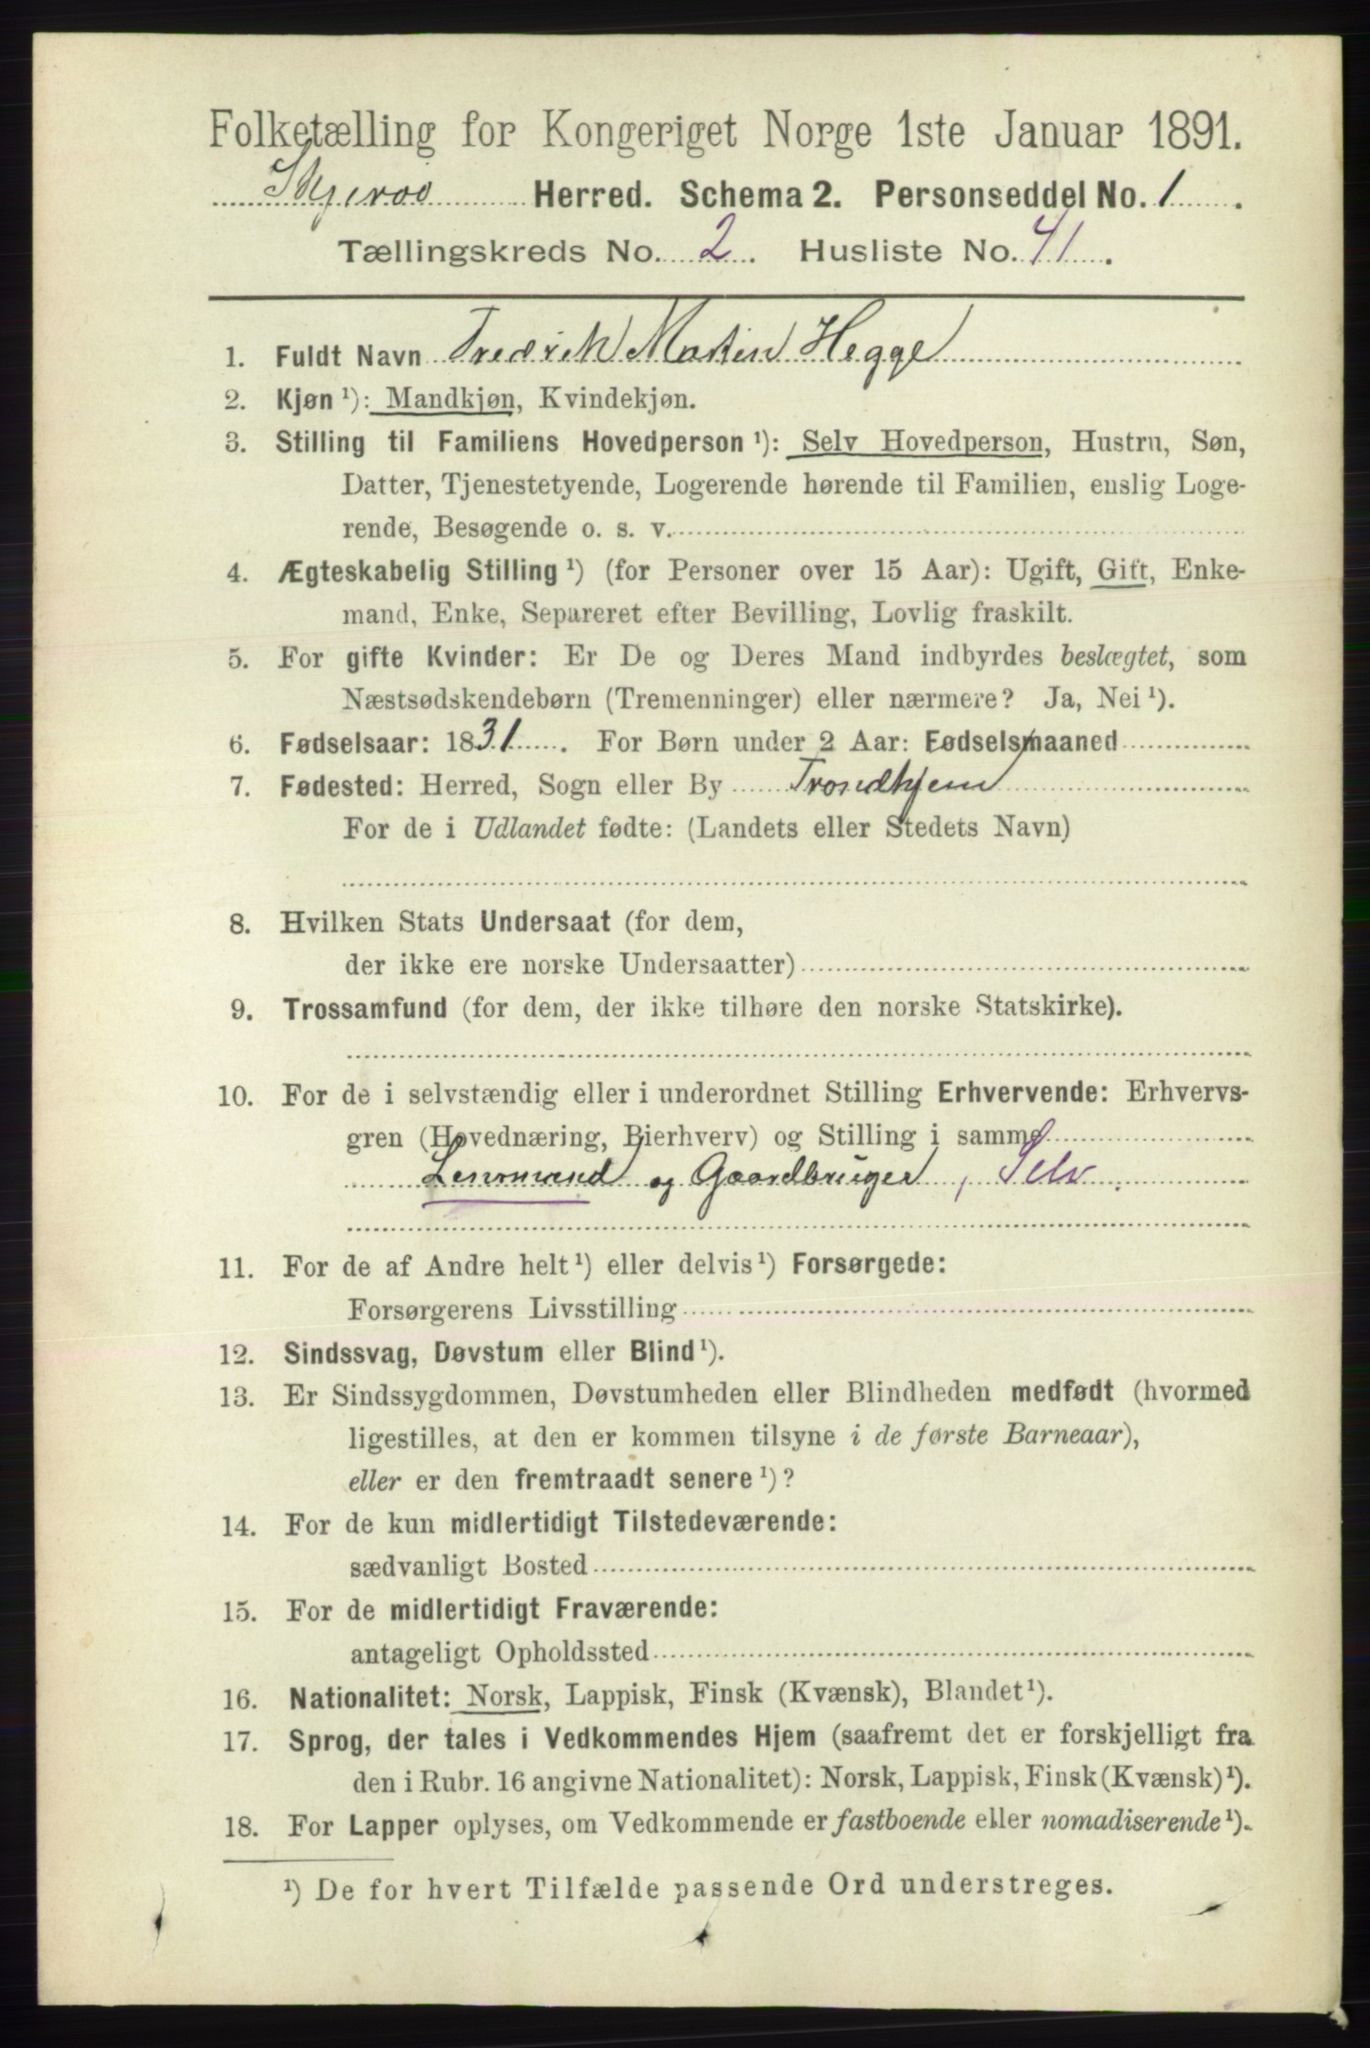 Folketælling for Kongeriget Norge 1ste Januar 1891.
Skjervø Herred. Schema 2. Personseddel No. 1.
Tællingskreds No. 2. Husliste No. 41.
1. Fuldt Navn Fredrik Martin Hegge
2. Kjøn ¹): Mandkjøn, Kvindekjøn.
3. Stilling til Familiens Hovedperson ¹): Selv Hovedperson, Hustru, Søn,
Datter, Tjenestetyende, Logerende hørende til Familien, enslig Loge-
rende, Besøgende o. s. v.
4. Ægteskabelig Stilling ¹) (for Personer over 15 Aar): Ugift, Gift, Enke-
mand, Enke, Separeret efter Bevilling, Lovlig fraskilt.
5. For gifte Kvinder: Er De og Deres Mand indbyrdes beslægtet, som
Næstsødskendebørn (Tremenninger) eller nærmere? Ja, Nei ¹).
6. Fødselsaar: 1831. For Børn under 2 Aar: Fødselsmaaned
7. Fødested: Herred, Sogn eller By Trondhjem
For de i Udlandet fødte: (Landets eller Stedets Navn)
8. Hvilken Stats Undersaat (for dem,
der ikke ere norske Undersaatter)
9. Trossamfund (for dem, der ikke tilhøre den norske Statskirke).
10. For de i selvstændig eller i underordnet Stilling Erhvervende: Erhvervs-
gren (Hovednæring, Bierhverv) og Stilling i samme
Lensmand og Gaardbruger, Selv.
11. For de af Andre helt ¹) eller delvis ¹) Forsørgede:
Forsørgerens Livsstilling
12. Sindssvag, Døvstum eller Blind ¹).
13. Er Sindssygdommen, Døvstumheden eller Blindheden medfødt (hvormed
ligestilles, at den er kommen tilsyne i de første Barneaar),
eller er den fremtraadt senere ¹)?
14. For de kun midlertidigt Tilstedeværende:
sædvanligt Bosted
15. For de midlertidigt Fraværende:
antageligt Opholdssted
16. Nationalitet: Norsk, Lappisk, Finsk (Kvænsk), Blandet ¹).
17. Sprog, der tales i Vedkommendes Hjem (saafremt det er forskjelligt fra
den i Rubr. 16 angivne Nationalitet): Norsk, Lappisk, Finsk (Kvænsk) ¹).
18. For Lapper oplyses, om Vedkommende er fastboende eller nomadiserende ¹).
¹) De for hvert Tilfælde passende Ord understreges.